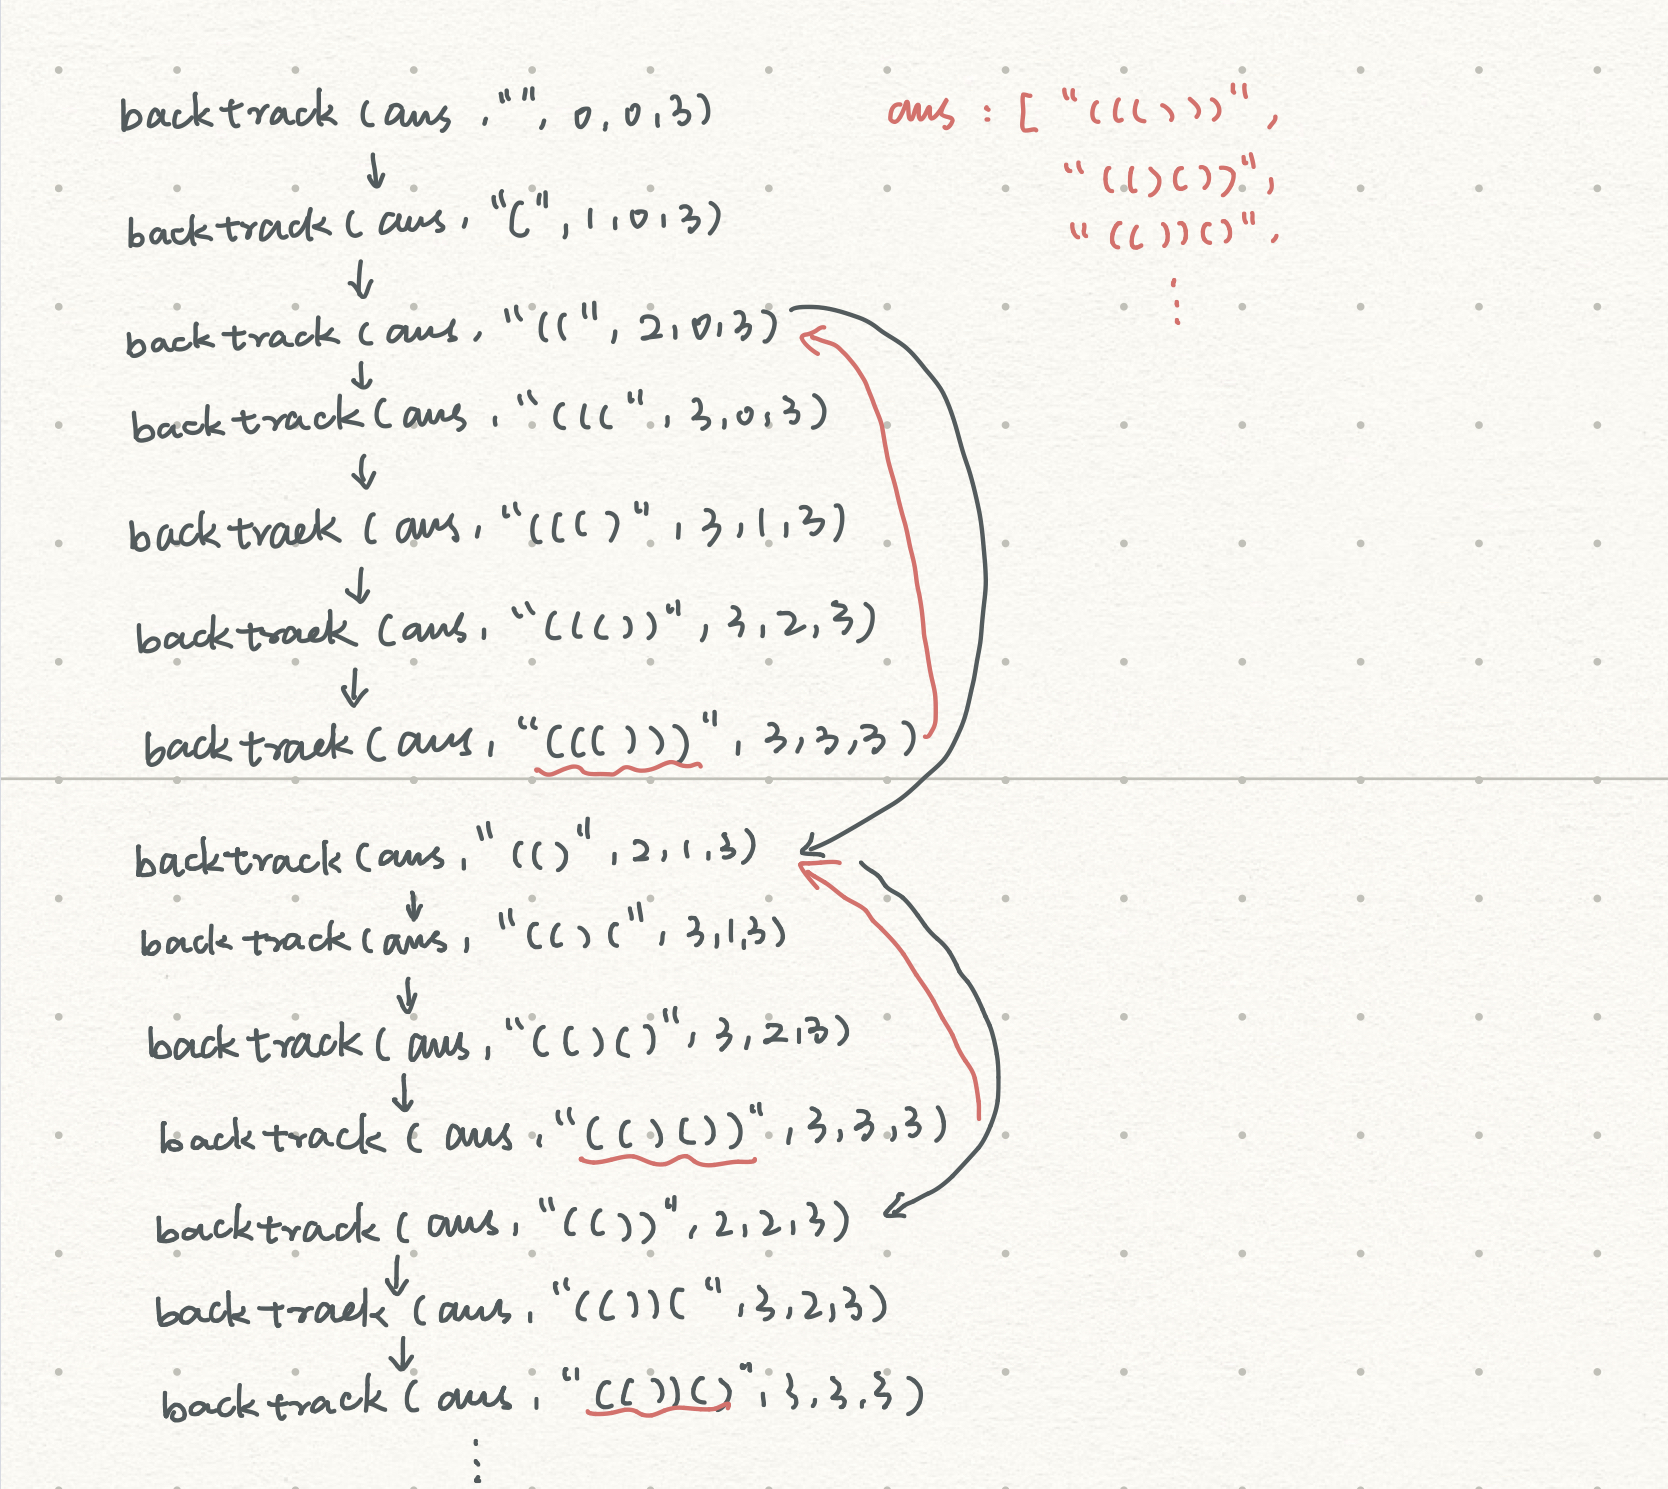 backtrack (ans, "", 0, 0, 3)
backtrack (ans, "(", 1, 0, 3)
backtrack (ans, "((", 2, 0, 3)
backtrack (ans, "(((", 3, 0, 3)
backtrack (ans, "((()", 3, 1, 3)
backtrack (ans, "((())", 3, 2, 3)
backtrack (ans, "((()))", 3, 3, 3)
backtrack (ans, "(()", 2, 1, 3)
backtrack (ans, "(()(", 3, 1, 3)
backtrack (ans, "(()()", 3, 2, 3)
backtrack (ans, "(()())", 3, 3, 3)
backtrack (ans, "(())", 2, 2, 3)
backtrack (ans, "(())(", 3, 2, 3)
backtrack (ans, "(())()", 3, 3, 3)
⋮
ans : [ "((()))",
"(()())",
"(())()",
⋮